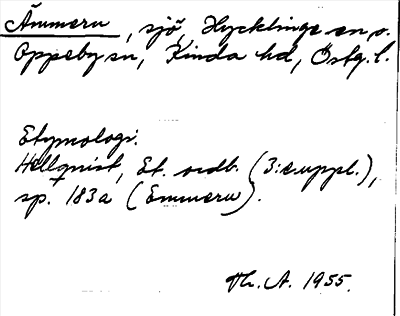 Ämmern, sjö, Hycklinge sn o.
Oppeby sn, Kinda hd, Östg. l.
Etymologi.
Hellquist, Et. ordb. (3:e uppl.),
sp. 183a (Emmern).
Th. A. 1955.